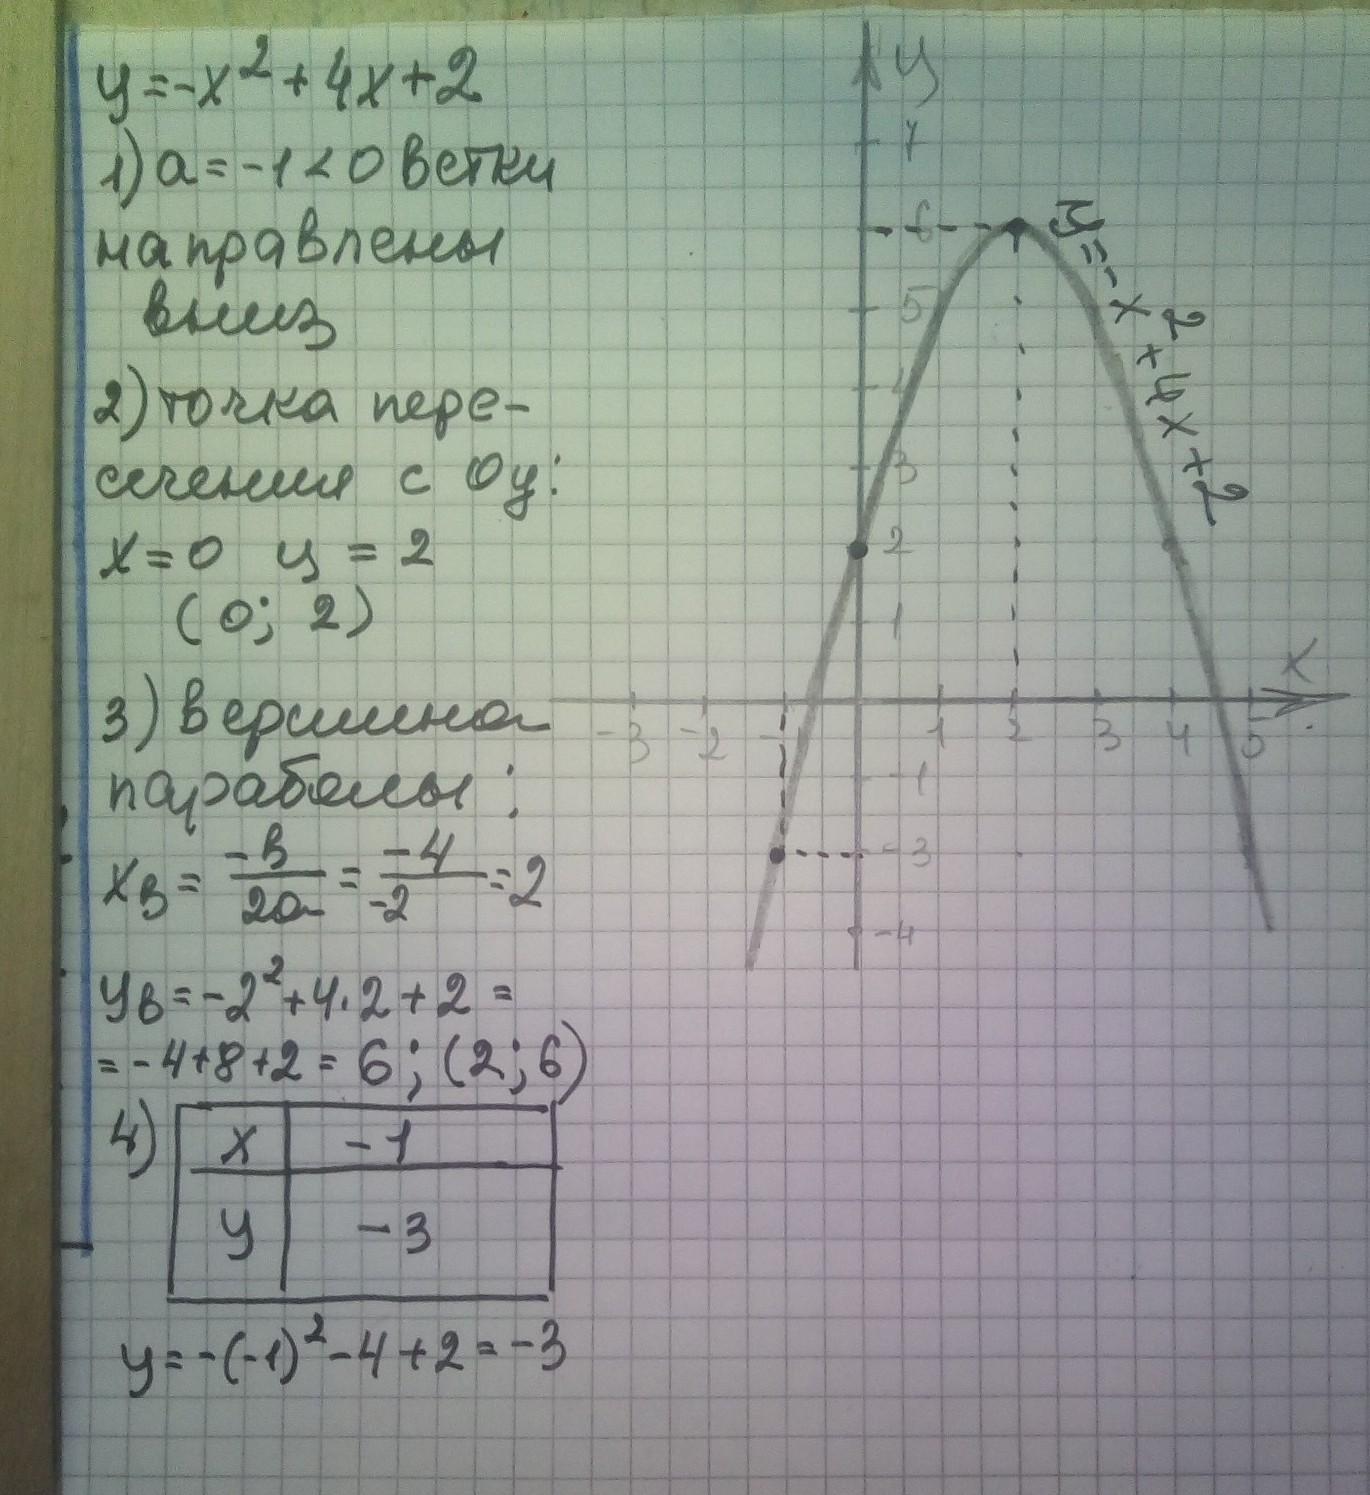 y=-x²+4x+2
1) a=-1<0 ветки
направлены
вниз
2) точка пере-
сечения с Оy:
x=0 y=2
(0; 2)
3) вершина
параболы:
xв = -в/2a = -4/-2 = 2
yв=-2²+4·2+2=
=-4+8+2=6; (2;6)
4)
x -1
y -3
y=-(-1)²-4+2=-3
y
7
6
y=-x²+4x+2
5
4
3
2
1
x
-3 -2 -1 1 2 3 4 5
-1
-3
-4